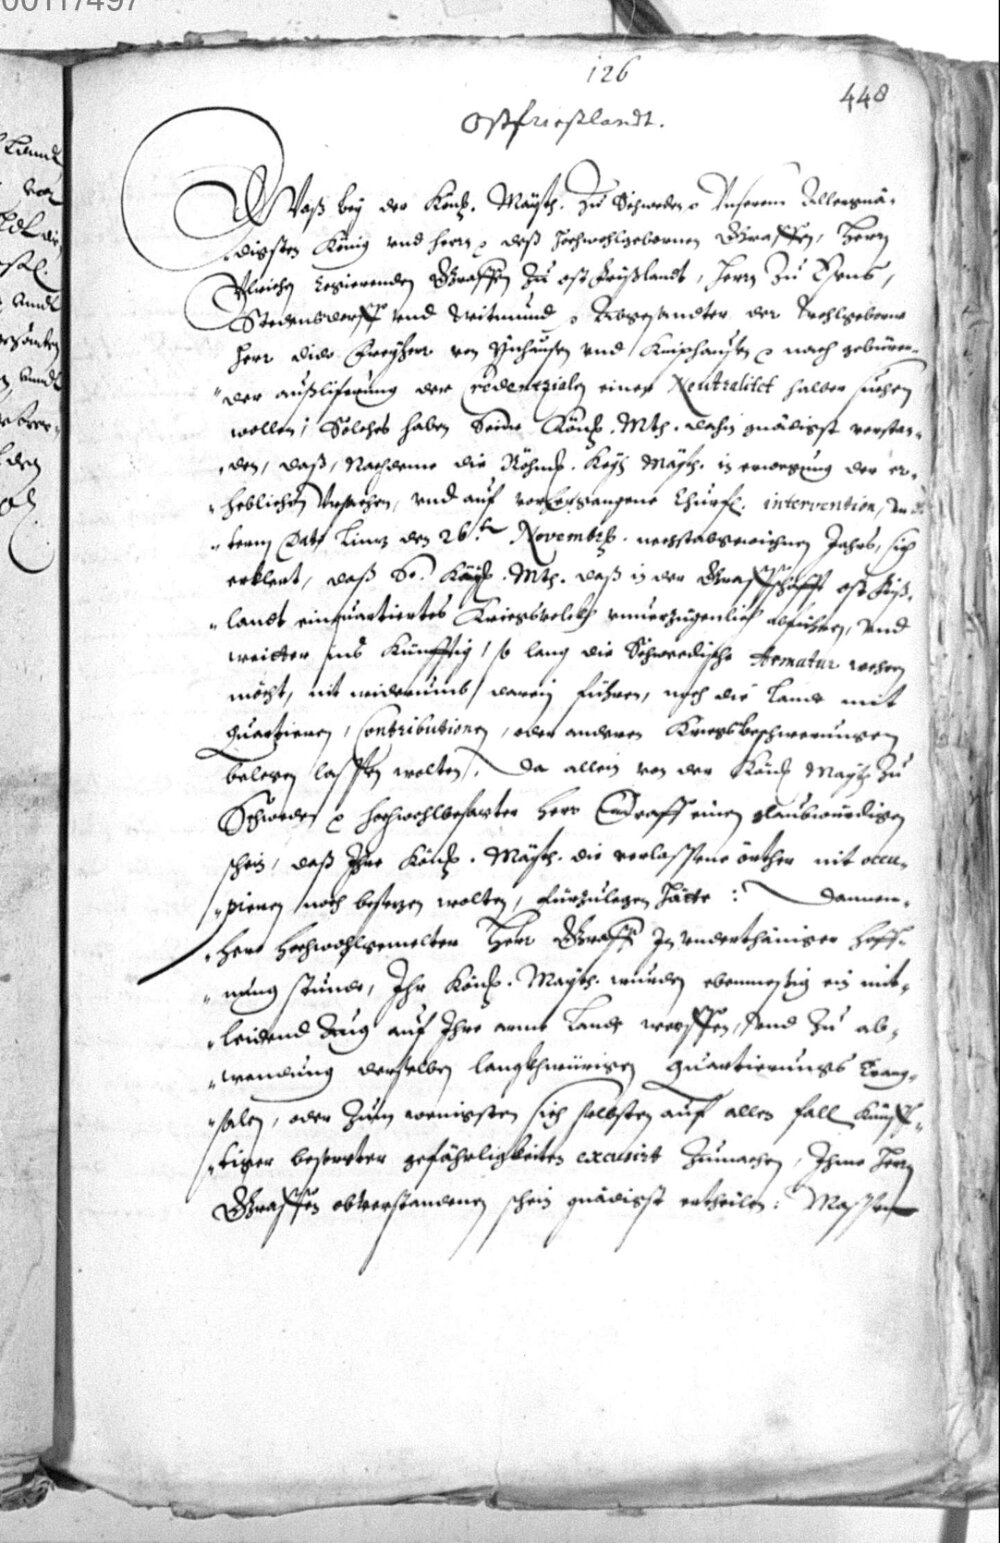 00117497
126
448
Ostfrießlandt.
Waß bey der Königl. Mäytt. zu Schweden &c Unserem Allergnä-
digsten König und herrn &c deß hochwohlgebornen Graffen, Herrn
Ulrichen Regierenden Graffen zu ost Frießlandt, herrn zu Esens,
Stedenstorff und Witmund &c Abgesandter der Wohlgeborne
Herr Dido Freyherr von Ynhausen und Kniphausen &c nach gebüren-
der außlieferung der Credenzialen einer Neutralitet halber suchen
wollen; Solches haben Seine Königl. Mtt. dahin gnädigst verstan-
den, daß, Nachdeme die Röhm. Keys. Mäytt. in erwegung der er-
heblichen Ursachen, und auf vorhergangene Churfl. intervention, un-
term Dato Linz den 26.t Novembris nechstabgewichnen Jahrs, sich
erklert, daß Se. Käys. Mtt. daß in der Graffschafft ost Frieß-
landt einquartiertes Kriegsvolckh unverzügenlich abführen, und
weitter ins Künfftig, so lang die Schwedische Armatur wehren
möcht, nit widerumb darein führen, noch die Lande mit
Quartieren, Contributionen, oder anderen Kriegsbeschwerungen
belegen lassen wolten, Da allein von der Königl Mäytt. zu
Schweden &c hochwohlbesagter Herr Graff einen glaubwürdigen
schein, daß Ihre Königl. Mäytt. die verlassene örther nit occu-
pieren noch besetzen wolten, fürzulegen hätte: Dannen-
hero hochwohlgemelter Herr Graff In underthäniger hoff-
nung stunde, Ihr Königl. Mäytt. wurden ebenmeßig ein mit-
leidend Aug auf Ihre arme Lande werffen, und zu ab-
wendung derselben langkhwürigen Quartierungs Trang-
salen, oder zum wenigsten sich selbsten auf allen fall Künff-
tiger besorgter gefährligkeiten excusirt zumachen, Ihme Herrn
Graffen obverstandenen schein gnädigst ertheilen: Massen